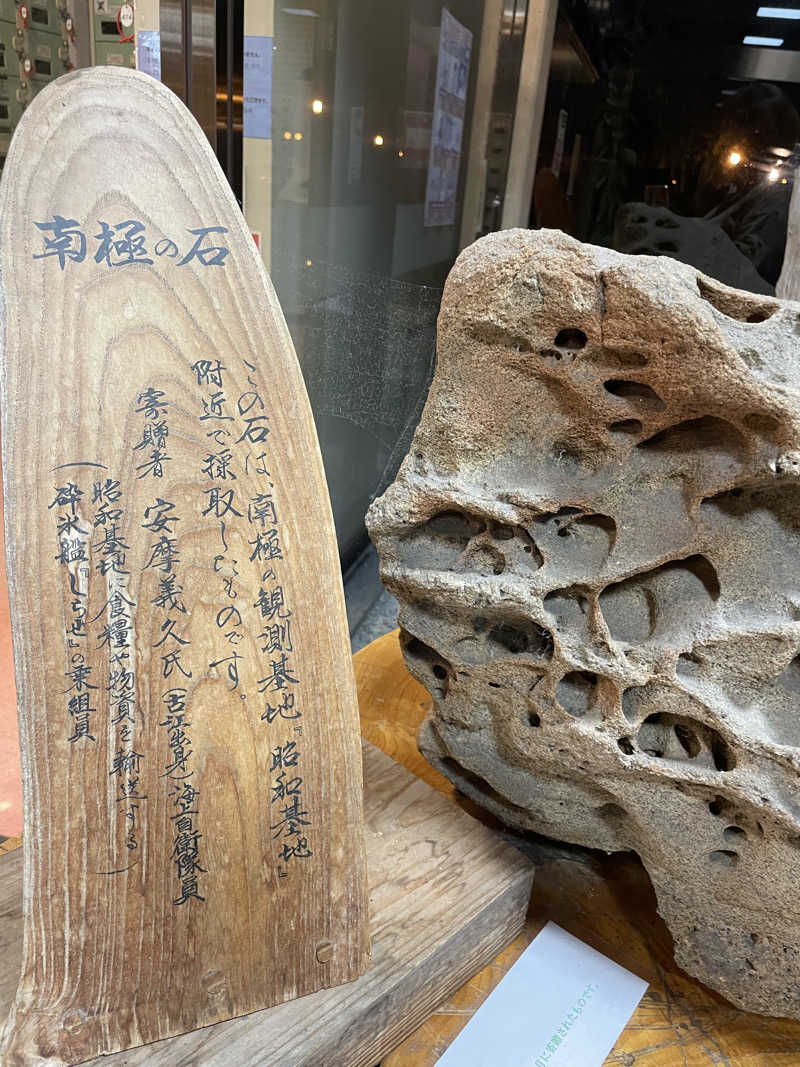 南極の石
この石は、南極の観測基地『昭和基地』
附近で採取したものです。
寄贈者 安摩義久氏(古江出身)海上自衛隊員
(昭和基地に食糧や物資を輸送する
砕氷艦『しらせ』の乗組員)